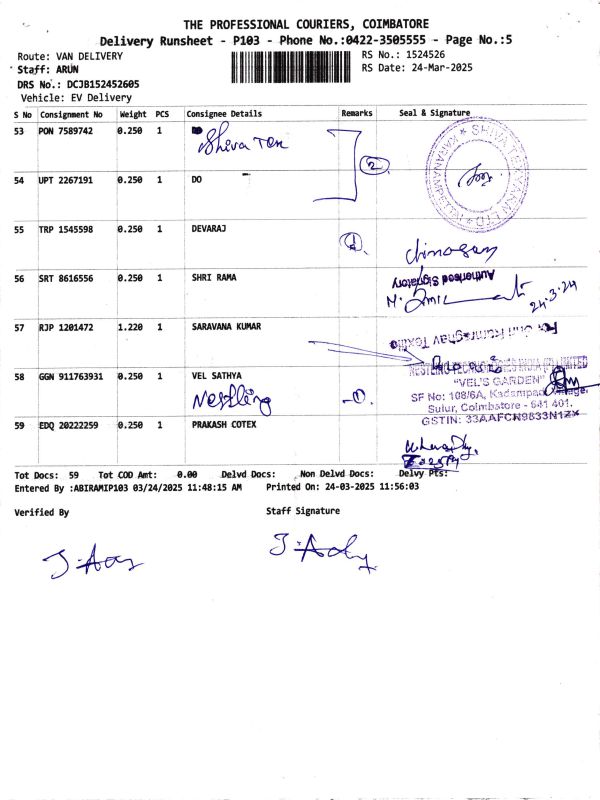 THE PROFESSIONAL COURIERS, COIMBATORE
Delivery Runsheet - P103 - Phone No.:0422-3505555 - Page No.:5
Route: VAN DELIVERY
RS No.: 1524526
Staff: ARUN
RS Date: 24-Mar-2025
DRS No.: DCJB152452605
Vehicle: EV Delivery
S No Consignment No Weight PCS Consignee Details Remarks Seal & Signature
53 PON 7589742 0.250 1 Shiva Tex
2
54 UPT 2267191 0.250 1 DO
55 TRP 1545598 0.250 1 DEVARAJ
56 SRT 8616556 0.250 1 SHRI RAMA
Authorised Signatory
24.3.24
57 RJP 1201472 1.220 1 SARAVANA KUMAR
58 GGN 911763931 0.250 1 VEL SATHYA
Nestling -1
"VEL'S GARDEN"
SF No: 108/6A, Kadampadi Village,
Sulur, Coimbatore - 641 401.
GSTIN: 33AAFCN9833N1ZX
59 EDQ 20222259 0.250 1 PRAKASH COTEX
Tot Docs: 59 Tot COD Amt: 0.00 Delvd Docs: Non Delvd Docs: Delvy Pts:
Entered By :ABIRAMIP103 03/24/2025 11:48:15 AM Printed On: 24-03-2025 11:56:03
Verified By Staff Signature